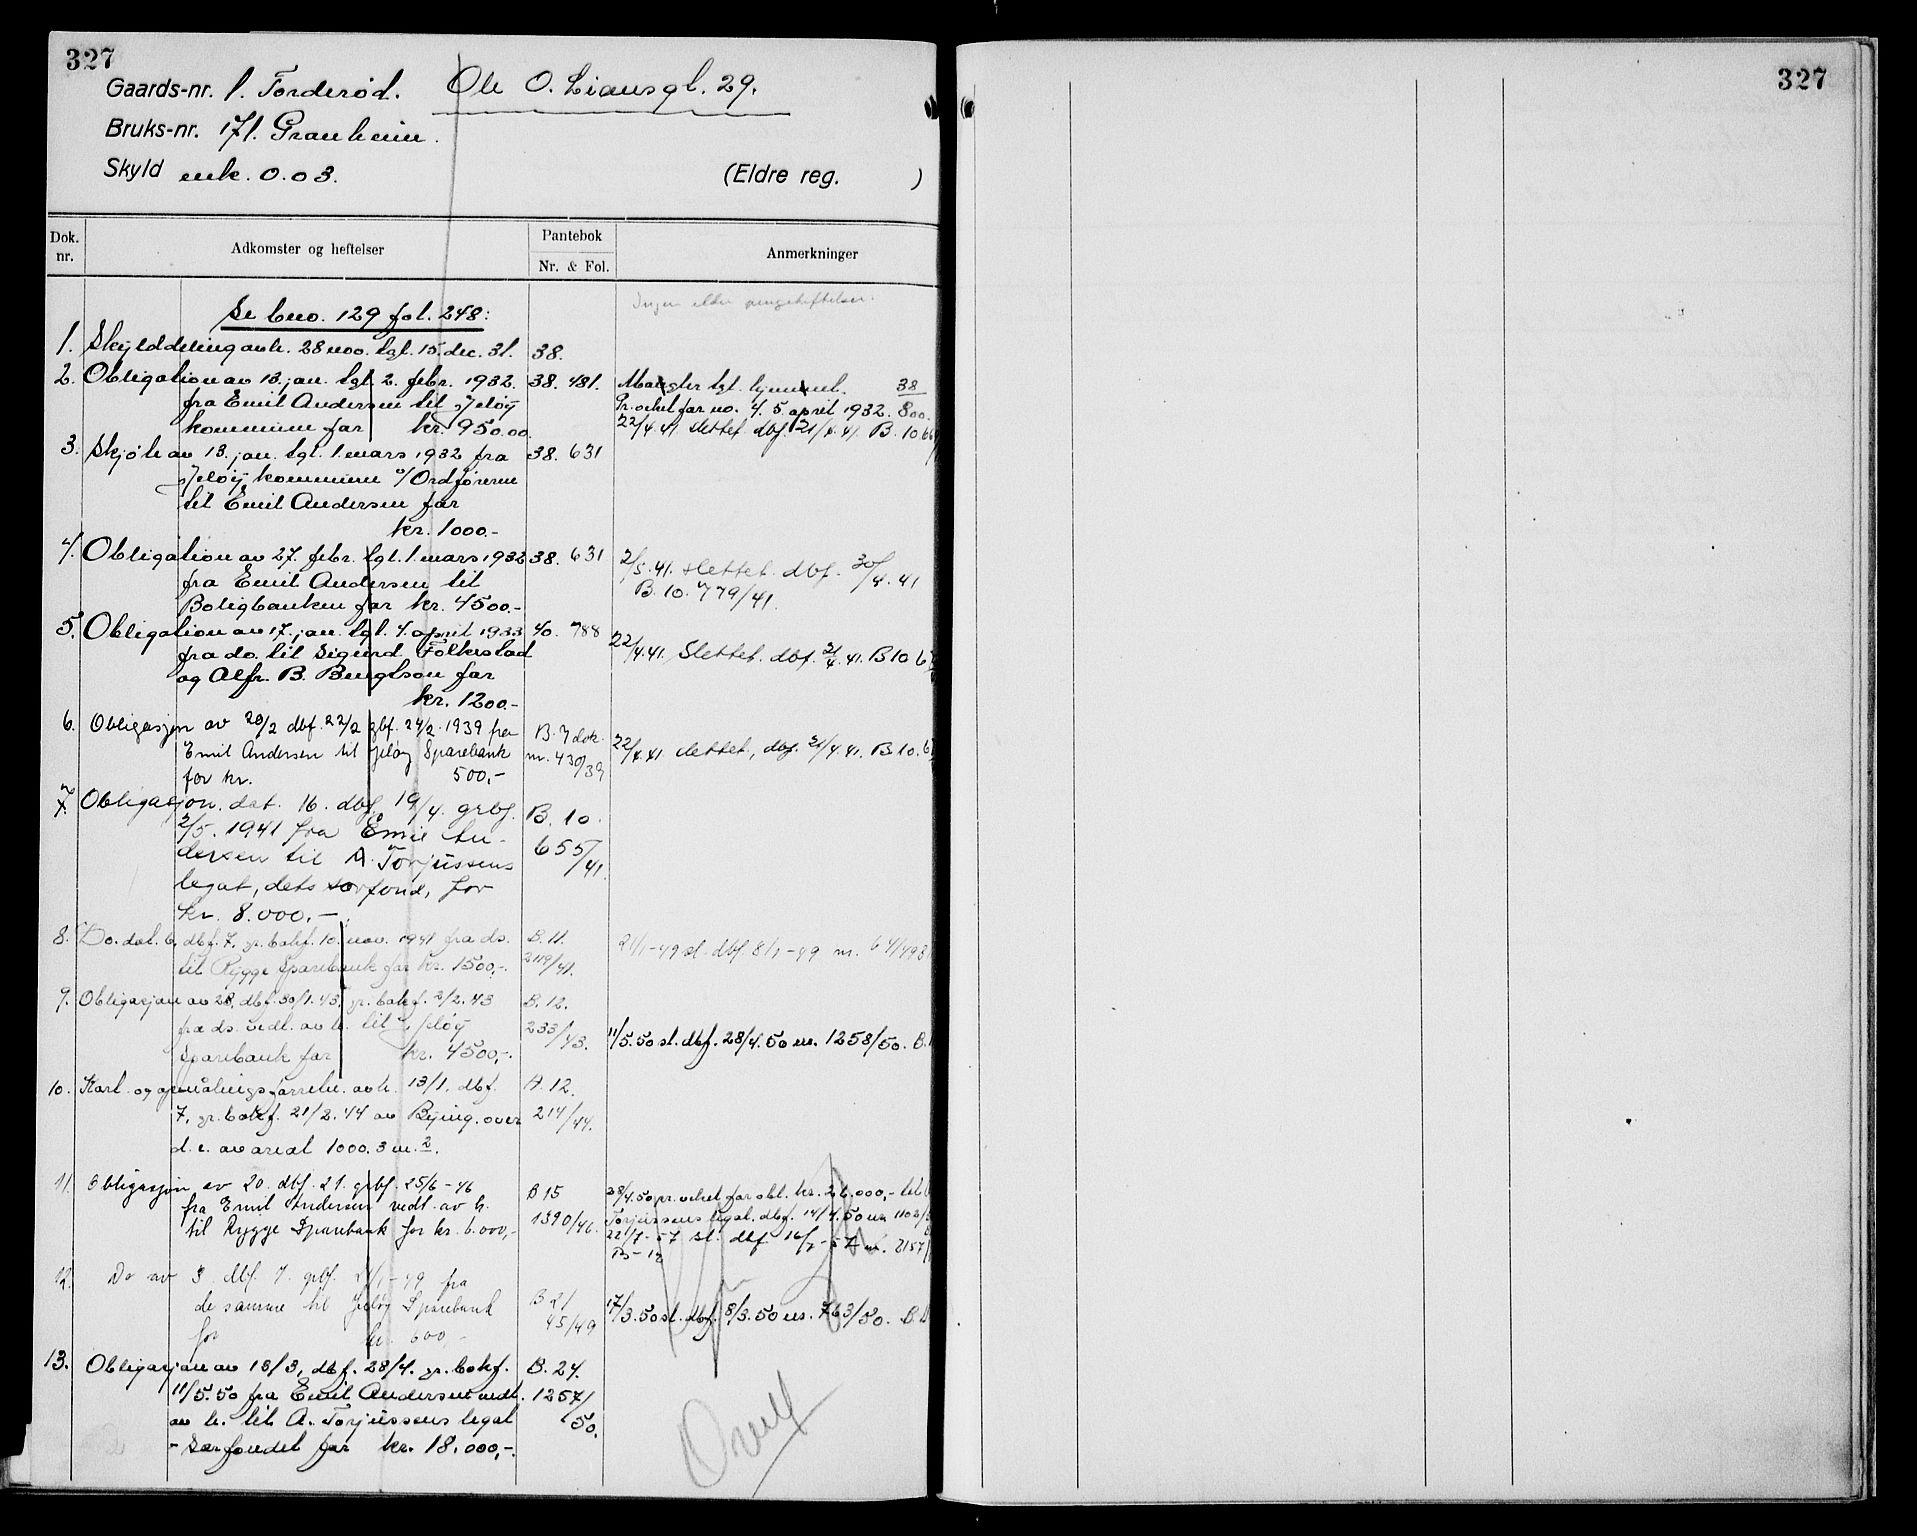 327
Gaards-nr. 1. Torderød. Ole O. Liansgt. 29.
Bruks-nr. 171. Granheim.
Skyld mk. 0.03. (Eldre reg. )
Dok. nr. Adkomster og heftelser Pantebok Nr. & Fol. Anmerkninger
Se bno. 129 fol. 248:
Ingen eldre pengeheftelser.
1. Skylddeling avh. 28 nov. tgl. 15. dec. 31. 38.
2. Obligation av 13. jan. tgl. 2. febr. 1932. 38. 481. Mangler tgl. hjemmel. 38
fra Emil Andersen til Jeløy Pr. veket for no. 4. 5 april 1932. 800.
kommune for kr. 950.00. 22/4.41 slettet dbf. 21/4.41. B. 10
3. Skjøte av 13. jan. tgl. 1. mars 1932 fra 38. 631
Jeløy kommune v/Ordføreren
til Emil Andersen for
kr. 1000.-
4. Obligation av 27. febr. tgl. 1. mars 1932 38. 631 2/5.41. slettet. dbf. 30/4.41
fra Emil Andersen til B. 10. 779/41.
Boligbanken for kr. 4500.-
5. Obligation av 17. jan. tgl. 4. april 1933 40. 788
fra do. til Sigurd Folkestad 22/4.41. Slettet. dbf. 21/4.41. B 10
og Alfr. B. Bengtson for
kr. 1200.-
6. Obligasjon av 20/2 dbf. 22/2 gbf. 24/2 1939 fra B. 7 dok.
Emil Andersen til Jeløy Sparebank nr. 430/39 22/4.41 slettet, dbf. 21/4 41. B. 10.
for kr. 500,-
7. Obligasjon. dat. 16. dbf. 19/4. grbf. B. 10.
2/5. 1941 fra Emil An- 655/41.
dersen til A. Torjussens
legat, dets særfond, for
kr. 8.000,-
8. Do. dat. 6. dbf. 7. gr. bokf. 10. nov. 1941 fra ds. B. 11. 21/1-49 sl. dbf. 8/1-49 nr. 64/49
til Rygge Sparebank for kr. 1500,-. 2119/41.
9. Obligasjon av 28. dbf. 30/1.43. gr. bokf. 2/2. 43 B. 12.
fra ds. vedt. av h. til Jeløy 233/43. 11/5.50 sl. dbf. 28/4.50 nr. 1258/50. B.
Sparebank for kr. 4500,-.
10. Kart- og opmålingsforretn. avh. 13/1. dbf. A. 12.
7. gr. bokf. 21/2. 44 av Bying. over 214/44.
d. e. av areal 1000.3 m.2.
11. Obligasjon av 20. dbf. 21. grbf. 25/6-46 B 15 28/4.50 pr. veket for obl. kr. 26.000,- til
fra Emil Andersen vedt. av h. 1390/46. Torjussens legat. dbf. 14/4.50 nr 1102/
til Rygge Sparebank for kr. 6.000,- 22/7-57 sl. dbf. 16/7-57 nr. 2157/
12. Do av 3. dbf. 7. grbf. 21/1-49 fra
de samme til Jeløy Sparebank B 21 17/3.50 sl. dbf. 8/3.50 nr. 763/50. B
for kr. 600,- 45/49
13. Obligasjon av 18/3, dbf. 28/4. gr. bokf. B. 24.
11/5.50 fra Emil Andersen vedt. 1257/
av h. til A. Torjussens legat 50.
- Særfondet for kr. 18.000,-.
Overf
327